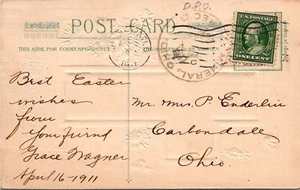 D.P.O.
POST CARD
THIS SIDE FOR CORRESPONDENCE
U.S. POSTAGE
ONE CENT
Best Easter
wishes
from
Your friend
Grace Wagner
April 16-1911
Mr. Mrs. P. Enderlin
Carbondale
Ohio.